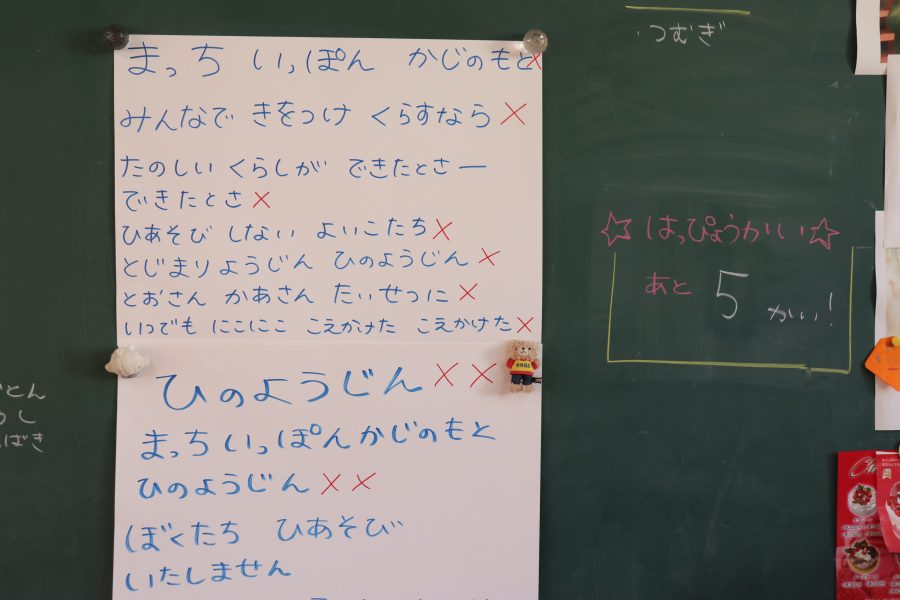 まっち いっぽん かじのもと×
みんなで きをつけ くらすなら ×
たのしい くらしが できたとさー
できたとさ ×
ひあそび しない よいこたち×
とじまりようじん ひのようじん ×
とおさん かあさん たいせつに ×
いつでも にこにこ こえかけた こえかけた×
ひのようじん ××
まっちいっぽんかじのもと
ひのようじん ××
ぼくたち ひあそび
いたしません
・つむぎ
☆はっぴょうかい☆
あと 5 かい!